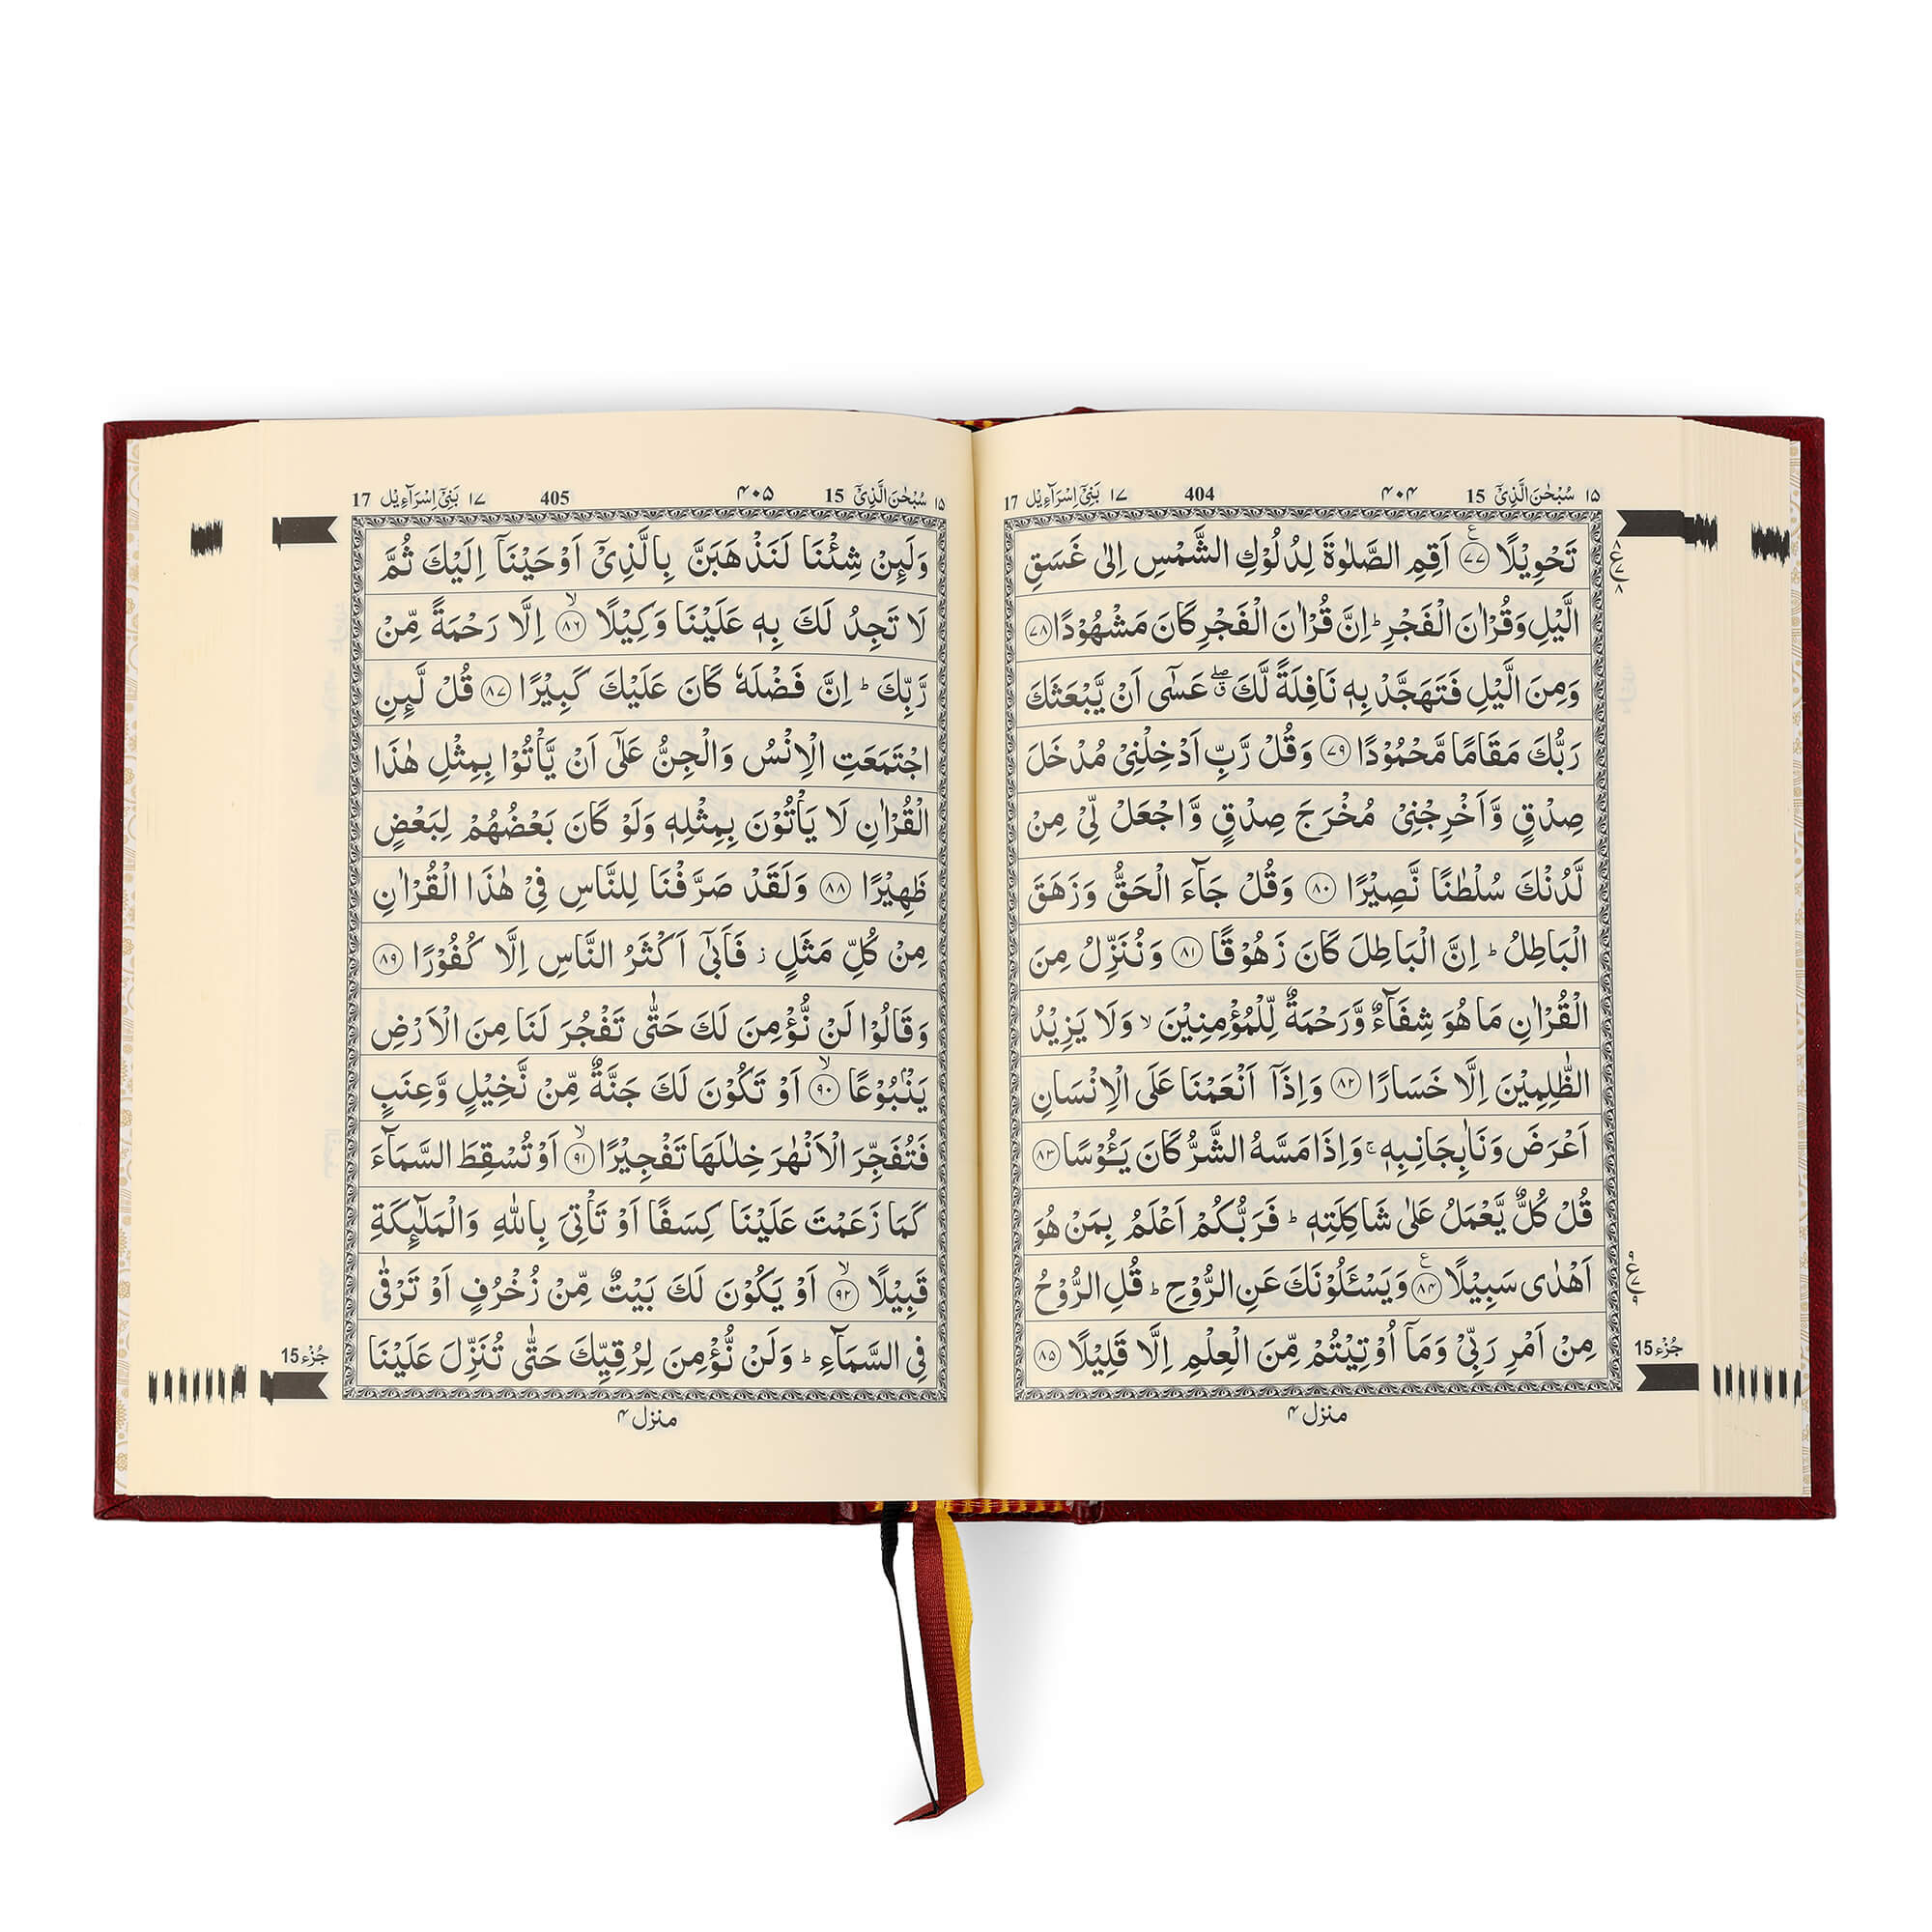 ١٥ سُبْحٰنَ الَّذِیْۤ 15 ۴۰۴ 404 ١٧ بَنِیْۤ اِسْرَآءِیْل 17
تَحْوِیْلًا ﴿۷۷﴾ ع اَقِمِ الصَّلٰوةَ لِدُلُوْكِ الشَّمْسِ اِلٰی غَسَقِ
الَّیْلِ وَقُرْاٰنَ الْفَجْرِ ؕ اِنَّ قُرْاٰنَ الْفَجْرِ كَانَ مَشْهُوْدًا ﴿۷۸﴾
وَمِنَ الَّیْلِ فَتَهَجَّدْ بِهٖ نَافِلَةً لَّكَ ۖۗ عَسٰۤی اَنْ یَّبْعَثَكَ
رَبُّكَ مَقَامًا مَّحْمُوْدًا ﴿۷۹﴾ وَقُلْ رَّبِّ اَدْخِلْنِیْ مُدْخَلَ
صِدْقٍ وَّاَخْرِجْنِیْ مُخْرَجَ صِدْقٍ وَّاجْعَلْ لِّیْ مِنْ
لَّدُنْكَ سُلْطٰنًا نَّصِیْرًا ﴿۸۰﴾ وَقُلْ جَآءَ الْحَقُّ وَزَهَقَ
الْبَاطِلُ ؕ اِنَّ الْبَاطِلَ كَانَ زَهُوْقًا ﴿۸۱﴾ وَنُنَزِّلُ مِنَ
الْقُرْاٰنِ مَا هُوَ شِفَآءٌ وَّرَحْمَةٌ لِّلْمُؤْمِنِیْنَ ۙ وَلَا یَزِیْدُ
الظّٰلِمِیْنَ اِلَّا خَسَارًا ﴿۸۲﴾ وَاِذَاۤ اَنْعَمْنَا عَلَی الْاِنْسَانِ
اَعْرَضَ وَنَاٰ بِجَانِبِهٖ ۚ وَاِذَا مَسَّهُ الشَّرُّ كَانَ یَئُوْسًا ﴿۸۳﴾
قُلْ كُلٌّ یَّعْمَلُ عَلٰی شَاكِلَتِهٖ ؕ فَرَبُّكُمْ اَعْلَمُ بِمَنْ هُوَ
اَهْدٰی سَبِیْلًا ﴿۸۴﴾ ع وَیَسْئَلُوْنَكَ عَنِ الرُّوْحِ ؕ قُلِ الرُّوْحُ
مِنْ اَمْرِ رَبِّیْ وَمَاۤ اُوْتِیْتُمْ مِّنَ الْعِلْمِ اِلَّا قَلِیْلًا ﴿۸۵﴾
جُزْء 15
منزل ۴
١٥ سُبْحٰنَ الَّذِیْۤ 15 ۴۰۵ 405 ١٧ بَنِیْۤ اِسْرَآءِیْل 17
وَلَئِنْ شِئْنَا لَنَذْهَبَنَّ بِالَّذِیْۤ اَوْحَیْنَاۤ اِلَیْكَ ثُمَّ
لَا تَجِدُ لَكَ بِهٖ عَلَیْنَا وَكِیْلًا ﴿۸۶﴾ ۙ اِلَّا رَحْمَةً مِّنْ
رَّبِّكَ ؕ اِنَّ فَضْلَهٗ كَانَ عَلَیْكَ كَبِیْرًا ﴿۸۷﴾ قُلْ لَّئِنِ
اجْتَمَعَتِ الْاِنْسُ وَالْجِنُّ عَلٰۤی اَنْ یَّاْتُوْا بِمِثْلِ هٰذَا
الْقُرْاٰنِ لَا یَاْتُوْنَ بِمِثْلِهٖ وَلَوْ كَانَ بَعْضُهُمْ لِبَعْضٍ
ظَهِیْرًا ﴿۸۸﴾ وَلَقَدْ صَرَّفْنَا لِلنَّاسِ فِیْ هٰذَا الْقُرْاٰنِ
مِنْ كُلِّ مَثَلٍ ؗ فَاَبٰۤی اَكْثَرُ النَّاسِ اِلَّا كُفُوْرًا ﴿۸۹﴾
وَقَالُوْا لَنْ نُّؤْمِنَ لَكَ حَتّٰی تَفْجُرَ لَنَا مِنَ الْاَرْضِ
یَنْۢبُوْعًا ﴿۹۰﴾ ۙ اَوْ تَكُوْنَ لَكَ جَنَّةٌ مِّنْ نَّخِیْلٍ وَّعِنَبٍ
فَتُفَجِّرَ الْاَنْهٰرَ خِلٰلَهَا تَفْجِیْرًا ﴿۹۱﴾ ۙ اَوْ تُسْقِطَ السَّمَآءَ
كَمَا زَعَمْتَ عَلَیْنَا كِسَفًا اَوْ تَاْتِیَ بِاللّٰهِ وَالْمَلٰٓئِكَةِ
قَبِیْلًا ﴿۹۲﴾ ۙ اَوْ یَكُوْنَ لَكَ بَیْتٌ مِّنْ زُخْرُفٍ اَوْ تَرْقٰی
فِی السَّمَآءِ ؕ وَلَنْ نُّؤْمِنَ لِرُقِیِّكَ حَتّٰی تُنَزِّلَ عَلَیْنَا
جُزْء 15
منزل ۴